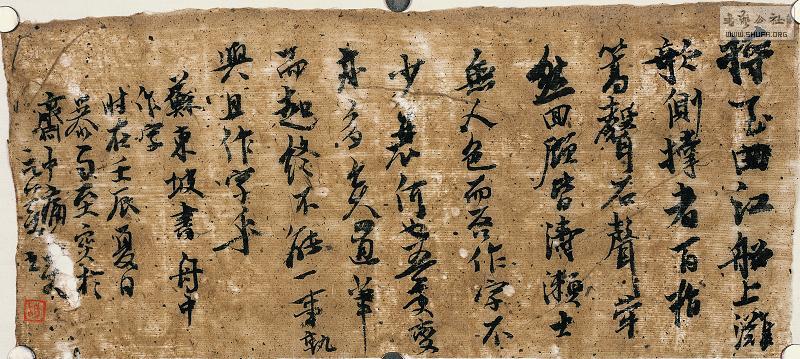 將至曲江船上灘
欹側撐者百指
篙聲石聲犖
然回顧皆濤瀨士
無人色而吾作字不
少衰何也吾更變
亦多矣置筆
而起終不能一事孰
與且作字乎
蘇東坡書舟中
作字
時在壬辰夏日
於
齋中
WWW.SHUFA.ORG